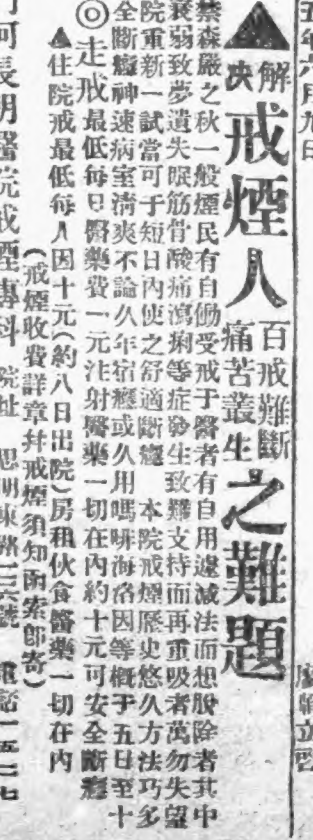 五年六月九日
▲解决戒煙人百戒難斷痛苦叢生之難題
禁森嚴之秋一般煙民有自動受戒于醫者有自用遞減法而想脫除者其中
衰弱致夢遺失眠筋骨酸痛瀉痢等症發生致難支持而再重吸者萬勿失望
院重新一試當可于短日內使之舒適斷癮 本院戒煙歷史悠久方法巧多
全斷癮神速病室清爽不論久年宿癮或久用嗎啡海洛因等概于五日至十
◎走戒最低每日醫藥費一元注射醫藥一切在內約十元可安全斷癮
▲住院戒最低每人因十元(約八日出院)房租伙食醫藥一切在內
(戒煙收費詳章幷戒煙須知函索即寄)
河長明醫院戒煙專科 院址 思明東路 號 電話一五二七